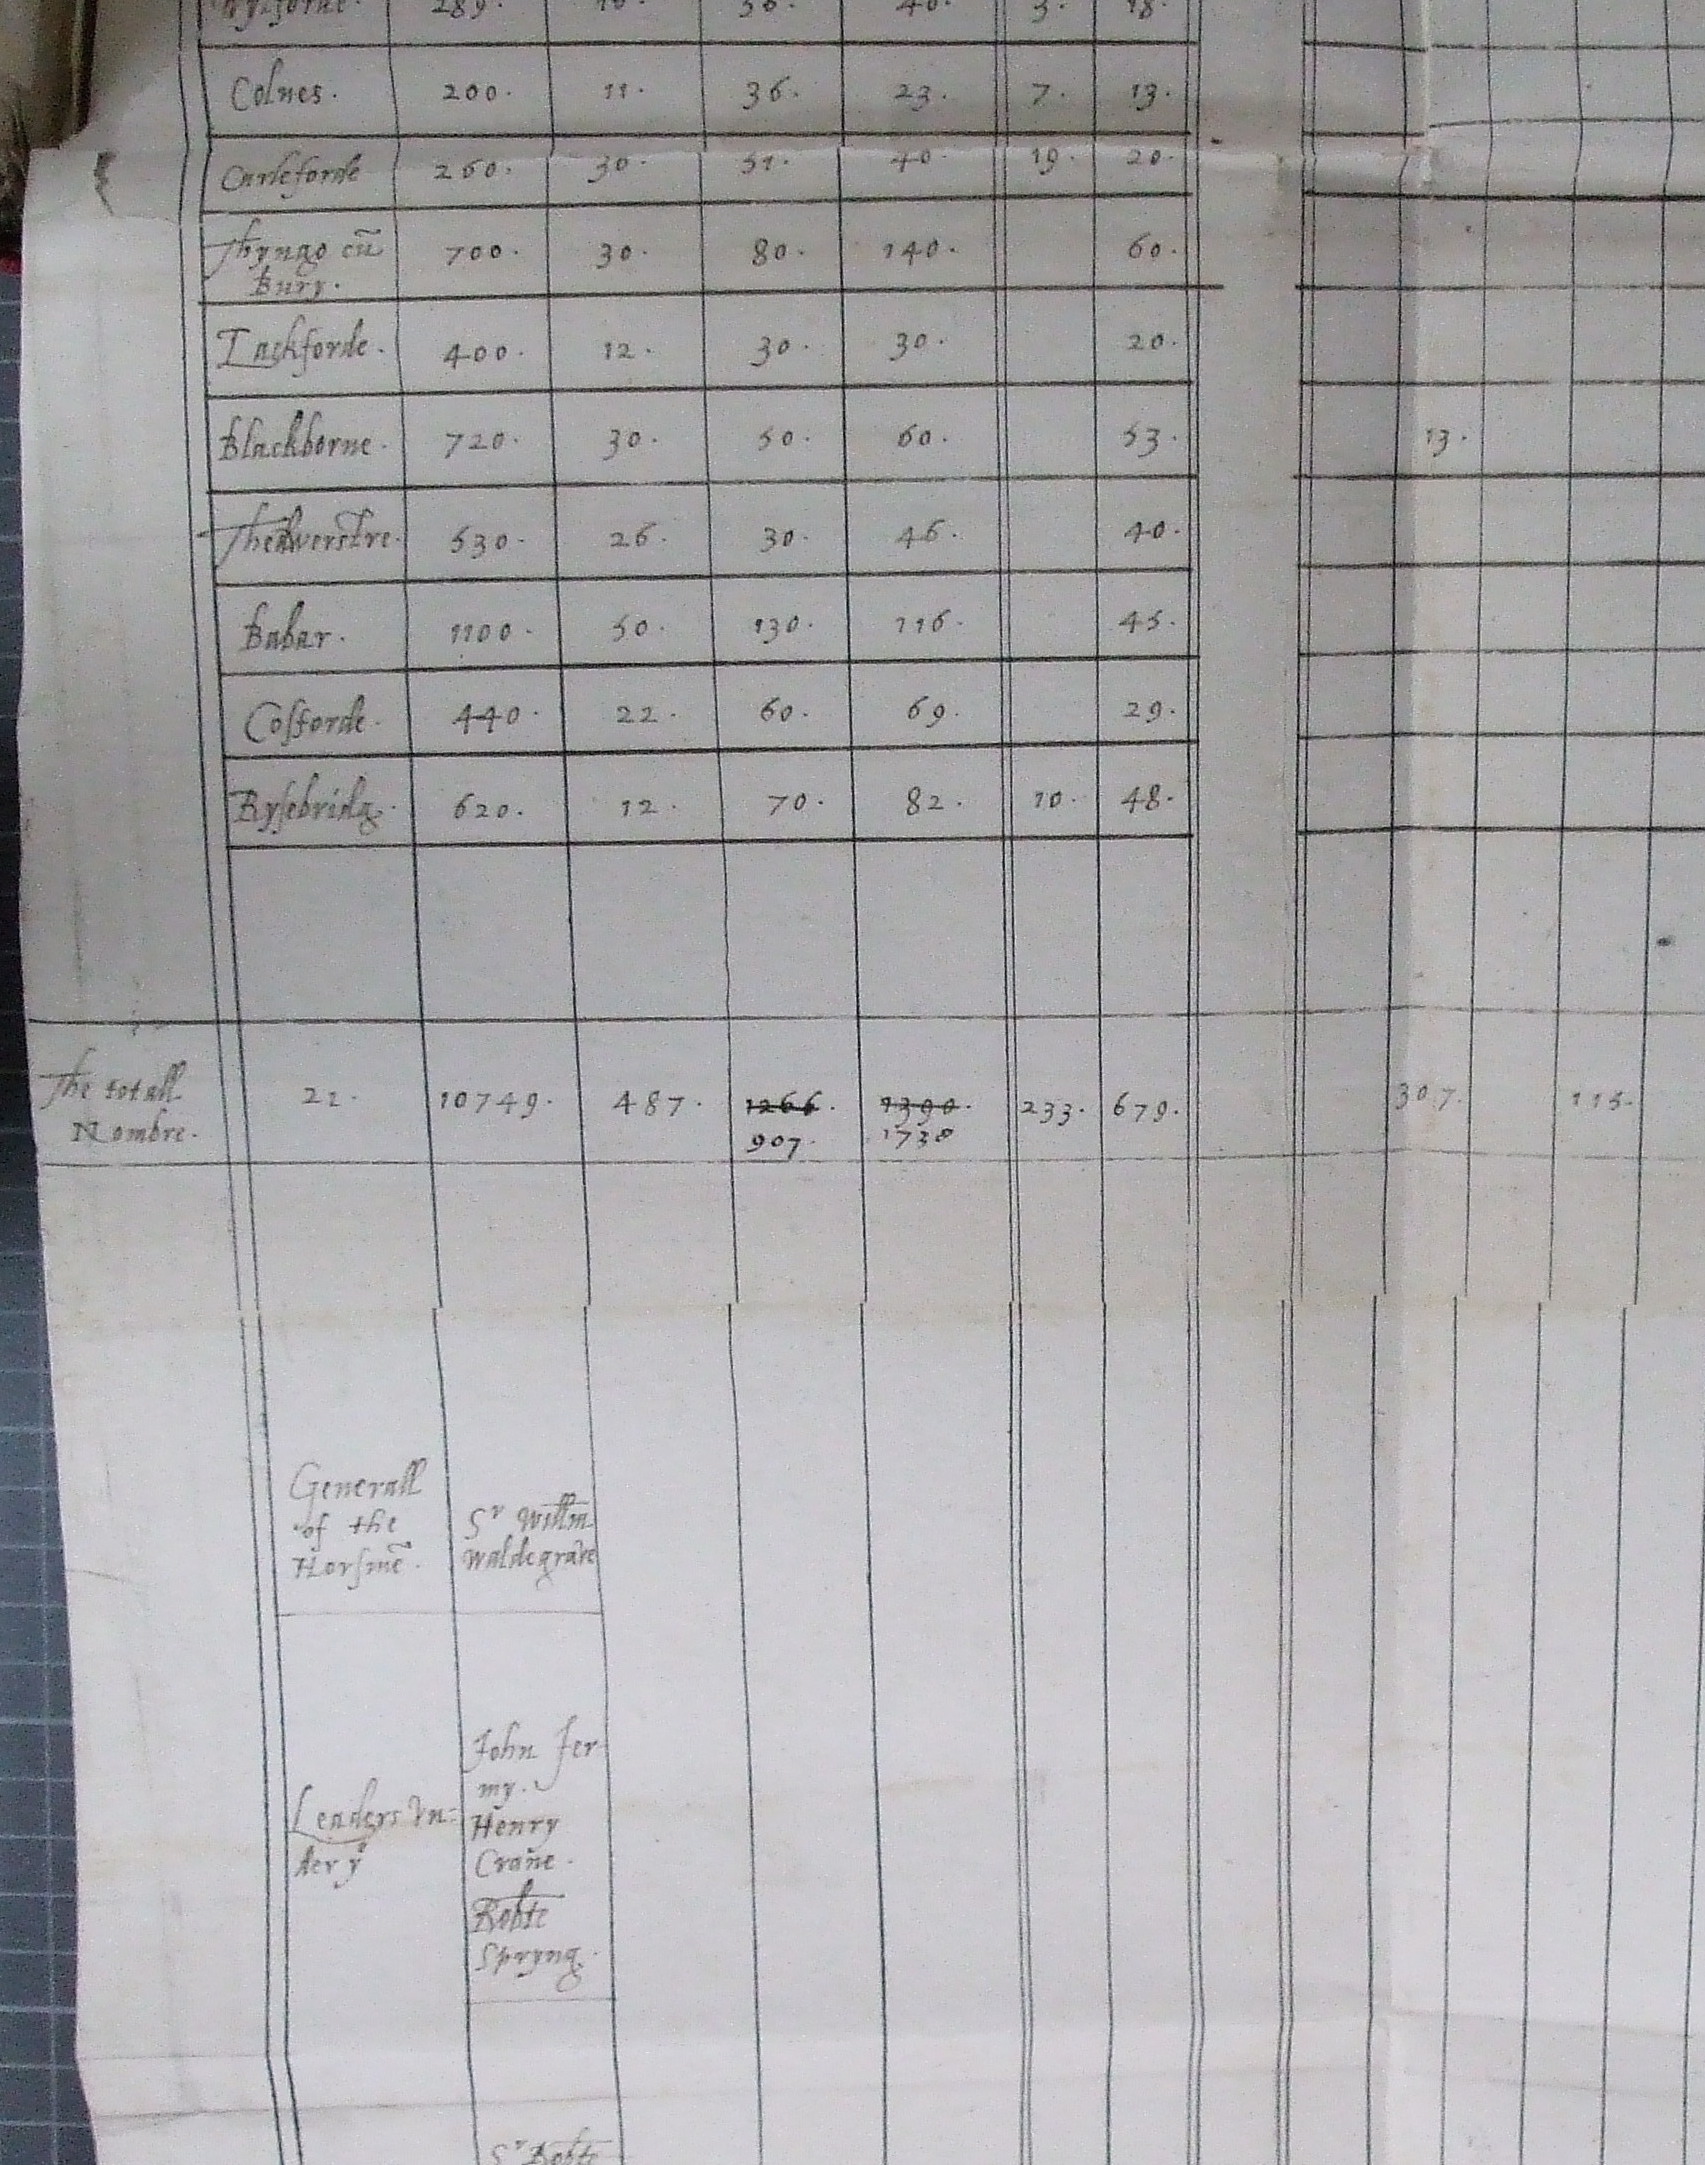 289. 36. 40. 3. 18.
Colnes. 200. 11. 36. 23. 7. 13.
Carleforde 260. 30. 51. 40. 19. 20.
Thyngo cū 700. 30. 80. 140. 60.
Bury.
Lackforde. 400. 12. 30. 30. 20.
Blackborne. 720. 30. 50. 60. 53. 13.
Thedwerstre. 530. 26. 30. 46. 40.
Babar. 1100. 50. 130. 116. 45.
Cosforde. 440. 22. 60. 69. 29.
Rysebridg. 620. 12. 70. 82. 10. 48.
The totall 21. 10749. 487. 1266. 1390. 233. 679. 307. 115.
Nombre. 907. 1738
Generall
of the
Horsmē.
Sr Willm
Waldegrave
Leaders vn=
der ye
John Jer
my.
Henry
Crane.
Robte
Spryng.
Sr Robte